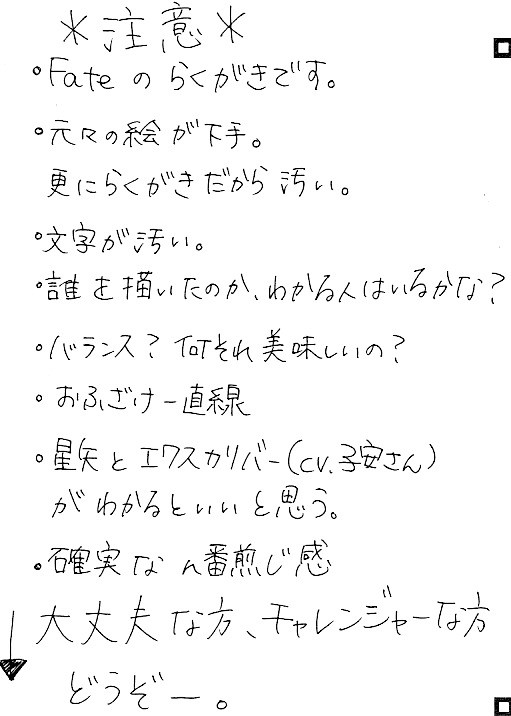 ＊注意＊
・Fateのらくがきです。
・元々の絵が下手。
更にらくがきだから汚い。
・文字が汚い。
・誰を描いたのか、わかる人はいるかな？
・バランス？何それ美味しいの？
・おふざけ一直線
・星矢とエクスカリバー(cv.子安さん)
がわかるといいと思う。
・確実なn番煎じ感
大丈夫な方、チャレンジャーな方
どうぞー。